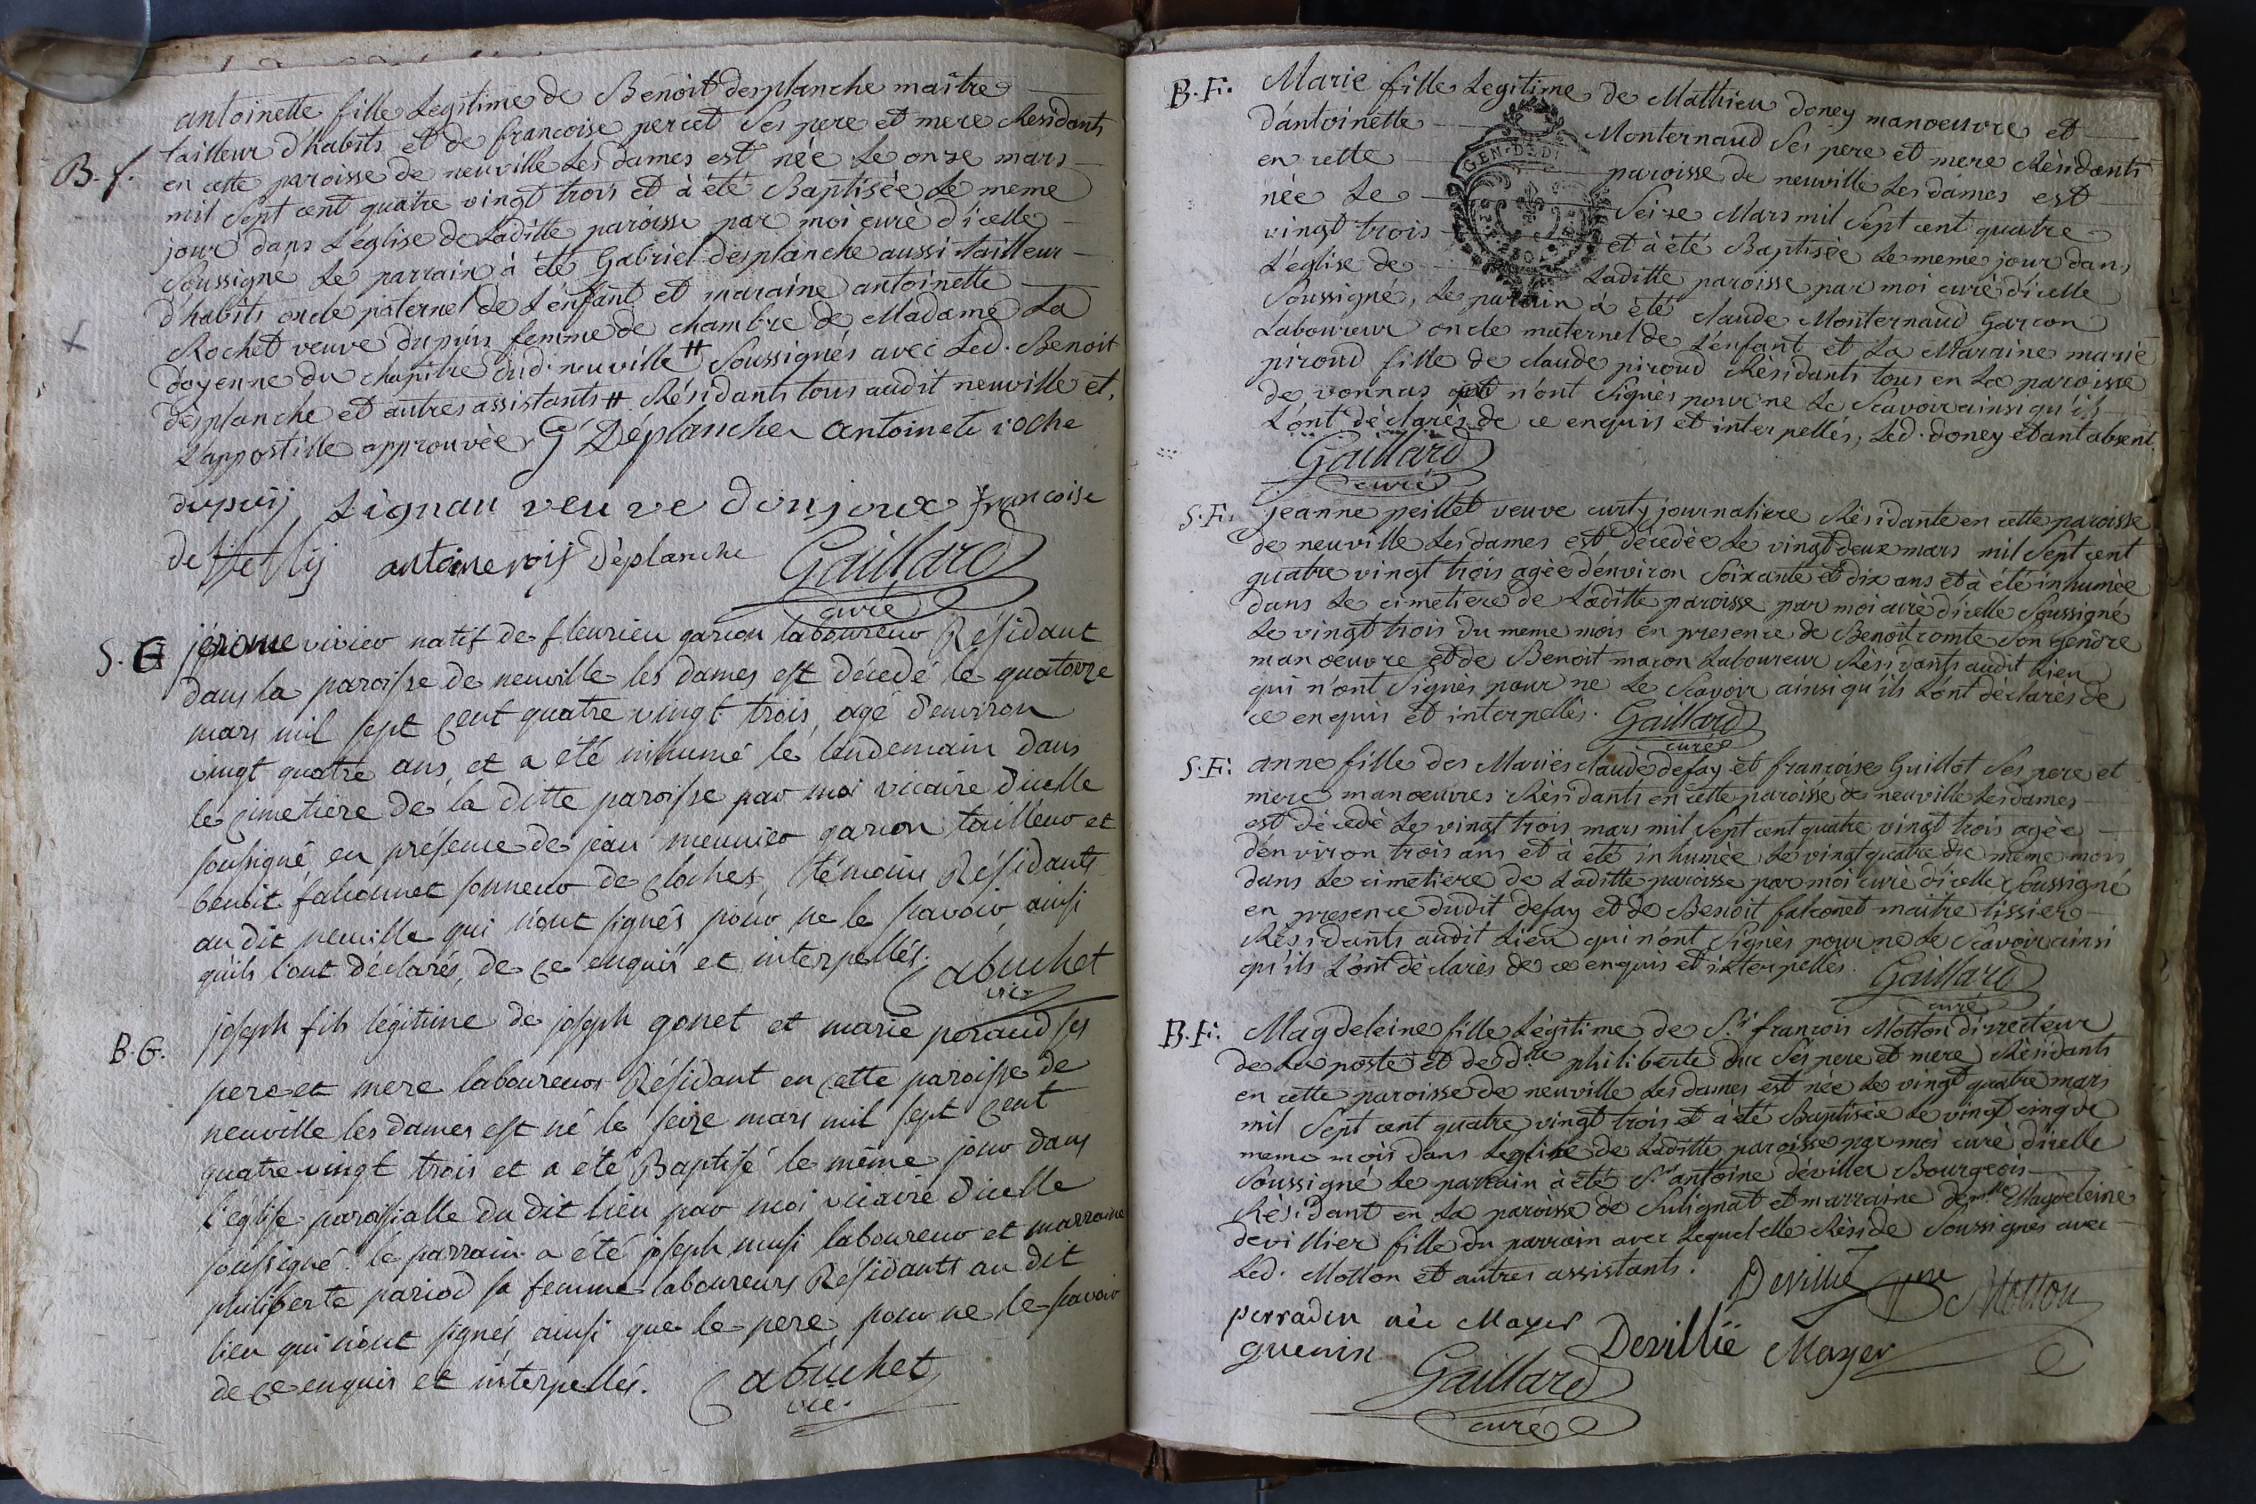 antoinette fille Legitime de Benoit desplanche maître
B. f. tailleur d'habits et de francoise percet Ses pere et mere Residants
en cette paroisse de neuville Les dames est née Le onze mars
mil Sept cent quatre vingt trois et à été Baptisée Le meme
jour dans L'église de Laditte paroisse par moi curé d'icelle
Soussigné Le parrain à été Gabriel desplanche aussi tailleur
d'habits oncle paternel de L'enfant et maraine antoinette
Rochet veuve dupuis femme de chambre de Madame La
doyenne du chapitre dud. neuville # Soussignés avec Led. Benoit
desplanche et autres assistants # Résidants tous audit neuville et,
L'appostille approuvée G Déplanche antoinete roche
dupuij Lignau veuve donjoux francoise
de antoine roij Déplanche Gaillard
curé
S. G jérome vivier natif de fleurieu garcon laboureur Résidant
dans la paroisse de neuville les dames est décedé le quatorze
mars mil sept cent quatre vingt trois, agé d'environ
vingt quatre ans, et a été inhumé le lendemain dans
le cimetiere de la ditte paroisse par moi vicaire d'icelle
soussigné, en présence de jean meunier garcon tailleur et
benoit falconnet sonneur de cloches, témoins Résidants
au dit neuville qui n'ont signés pour ne le scavoir ainsi
quils l'ont déclarés, de ce enquis et interpellés. Cabuchet
vic.
B. G. joseph fils légitime de joseph gonet et marie peraud ses
pere et mere laboureurs Résidant en cette paroisse de
neuville les dames est né le seize mars mil sept cent
quatre vingt trois et a été Baptisé le même jour dans
l'église paroissialle du dit lieu par moi vicaire d'icelle
soussigné. le parrain a été joseph musi laboureur et marraine
philiberte pariod sa femme laboureurs Résidants au dit
lieu qui n'ont signés ainsi que le pere, pour ne le scavoir
de ce enquis et interpellés. Cabuchet
vic.
B. F. Marie fille Legitime de Mathieu doney manoeuvre et
d'antoinette Monternaud Ses pere et mere Résidants
en cette paroisse de neuville Les dames est
GEN. DE D
née Le Seize Mars mil Sept cent quatre
vingt trois et à été Baptisée Le meme jour dans
L'église de Laditte paroisse par moi curé d'icelle
Soussigné, Le parrain à été claude Monternaud Garcon
Laboureur oncle maternel de L'enfant et La Maraine marie
piroud fille de claude piroud Résidants tous en La paroisse
de vonnas qui n'ont Signés pour ne Le Scavoir ainsi qu'ils
L'ont déclarés de ce enquis et interpellés, Led. doney étant absent.
Gaillard
curé
S. F. jeanne peillet veuve curty journaliere Résidante en cette paroisse
de neuville Les dames est décedée Le vingt deux mars mil Sept cent
quatre vingt trois agée d'environ Soixante et dix ans et à été inhumée
dans Le cimetiere de Laditte paroisse par moi curé d'icelle Soussigné
Le vingt trois du meme mois en presence de Benoit comte Son gendre
manoeuvre et de Benoit macon Laboureur Résidants audit Lieu
qui n'ont Signés pour ne Le Scavoir ainsi qu'ils L'ont déclarés de
ce enquis et interpellés. Gaillard
curé
S. F. anne fille des Mariés claude defay et francoise Guillot Ses pere et
mere manoeuvres Résidants en cette paroisse de neuville Les dames
est décedé Le vingt trois mars mil Sept cent quatre vingt trois agée
d'environ trois ans et à été inhumée Le vingt quatre du meme mois
dans Le cimetiere de Laditte paroisse par moi curé d'icelle Soussigné
en presence dudit defay et de Benoit falconet maitre tissier
Résidants audit Lieu qui n'ont Signés pour ne Le Scavoir ainsi
qu'ils L'ont déclarés de ce enquis et interpellés. Gaillard
curé
B. F. Magdeleine fille Légitime de Sr. francois Motton dirrecteur
de La poste et de dlle philiberte duc Ses pere et mere Résidants
en cette paroisse de neuville Les dames est née Le vingt quatre mars
mil Sept cent quatre vingt trois et à été Baptisée Le vingt cinq du
meme mois dans L'eglise de Laditte paroisse par moi curé d'icelle
Soussigné Le parrain à été Sr antoine déviller Bourgeois
Résidant en La paroisse de Sulignat et marraine demlle Magdeleine
devillier fille du parrain avec Lequel elle Réside Soussignés avec
Led. Motton et autres assistants. Devillië Motton
perradin née Mayer Devillië Mayer
guenin
Gaillard
curé